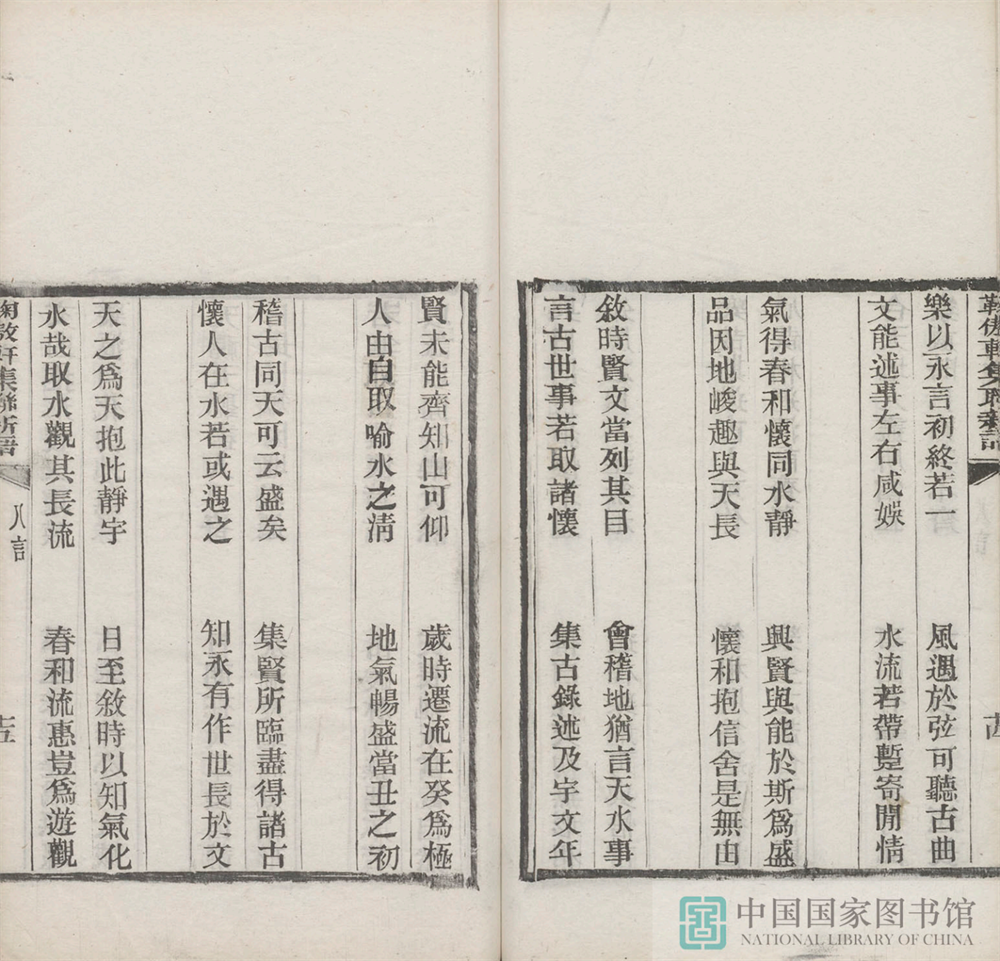 樂以永言初終若一 風遇於弦可聽古曲
文能述事左右咸娛 水流若帶蹔寄閒情
氣得春和懷同水靜 興賢與能於斯爲盛
品因地峻趣與天長 懷和抱信舍是無由
敘時賢文當列其目 會稽地猶言天水事
言古世事若取諸懷 集古錄述及宇文年
賢未能齊知山可仰 歲時遷流在癸爲極
人由自取喻水之清 地氣暢盛當丑之初
稽古同天可云盛矣 集賢所臨盡得諸古
懷人在水若或遇之 知永有作世長於文
天之爲天抱此靜宇 日至敘時以知氣化
水哉取水觀其長流 春和流惠豈爲遊觀
八言
中国国家图书馆
NATIONAL LIBRARY OF CHINA